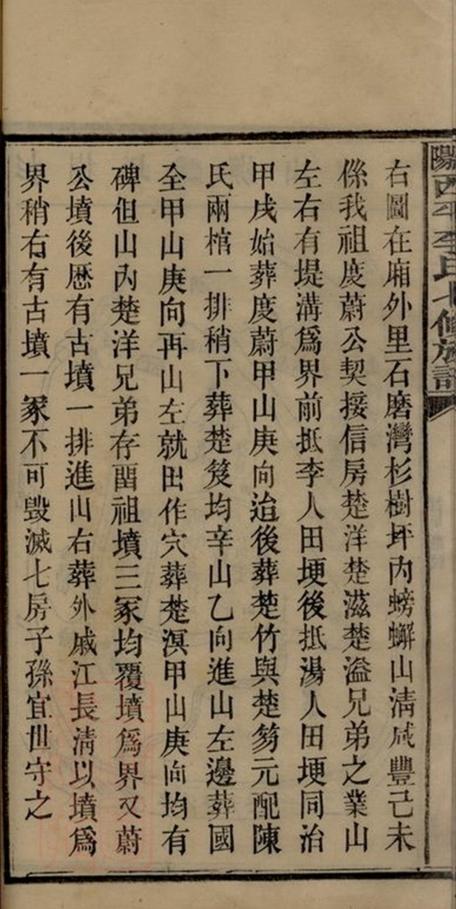 陽西平李氏七修族譜
右圖在廂外里石磨灣杉樹坪內螃蠏山淸咸豐己未
係我祖度蔚公契接信房楚洋楚滋楚溢兄弟之業山
左右有堤溝爲界前抵李人田埂後抵湯人田埂同治
甲戌始葬度蔚甲山庚向迨後葬楚竹與楚芶元配陳
氏兩棺一排稍下葬楚笅均辛山乙向進山左邊葬國
全甲山庚向再山左就田作穴葬楚溟甲山庚向均有
碑但山內楚洋兄弟存畱祖墳三冢均覆墳爲界又蔚
公墳後歷有古墳一排進山右葬外戚江長淸以墳爲
界稍右有古墳一冢不可毀滅七房子孫宜世守之